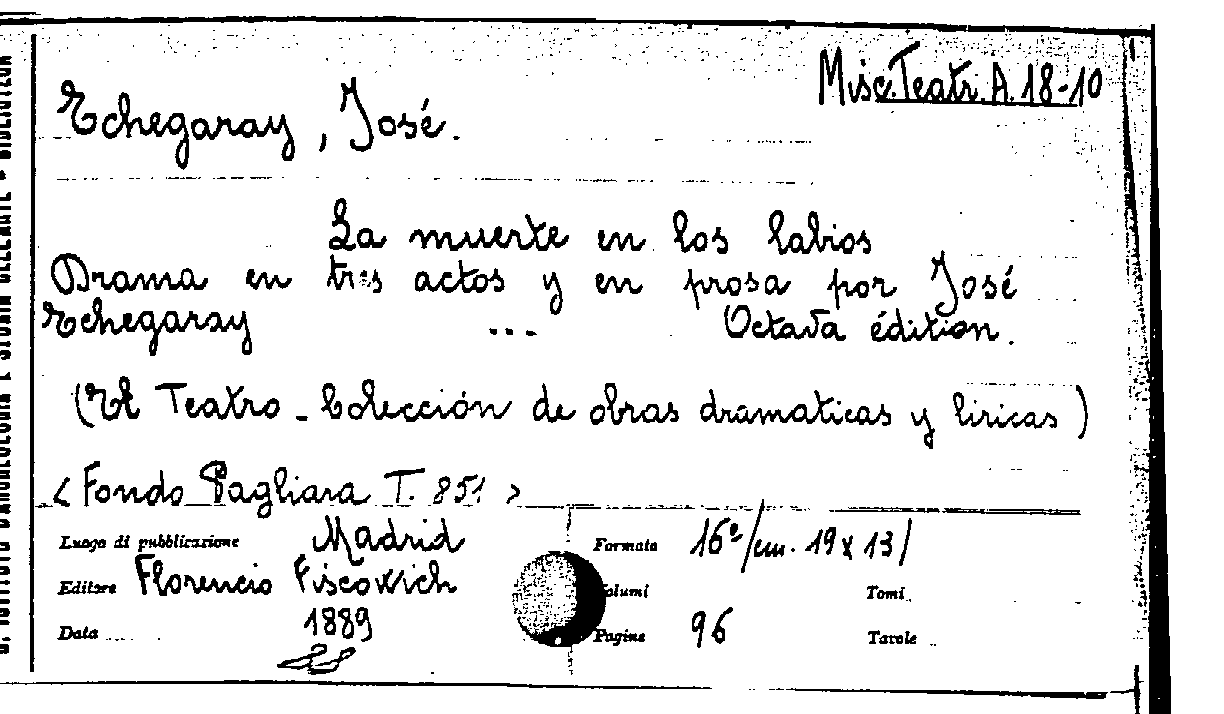 Misc. Teatr. A. 18-10
Echegaray, José.
La muerte en los labios
Drama en tres actos y en prosa por José
Echegaray ... Octava édition.
(El Teatro - Colección de obras dramaticas y liricas)
<Fondo Pagliara T. 851>
Luogo di pubblicazione Madrid Formato 16º/cm. 19 x 13/
Editore Florencio Fiscowich Volumi Tomi
Data 1889 Pagine 96 Tavole